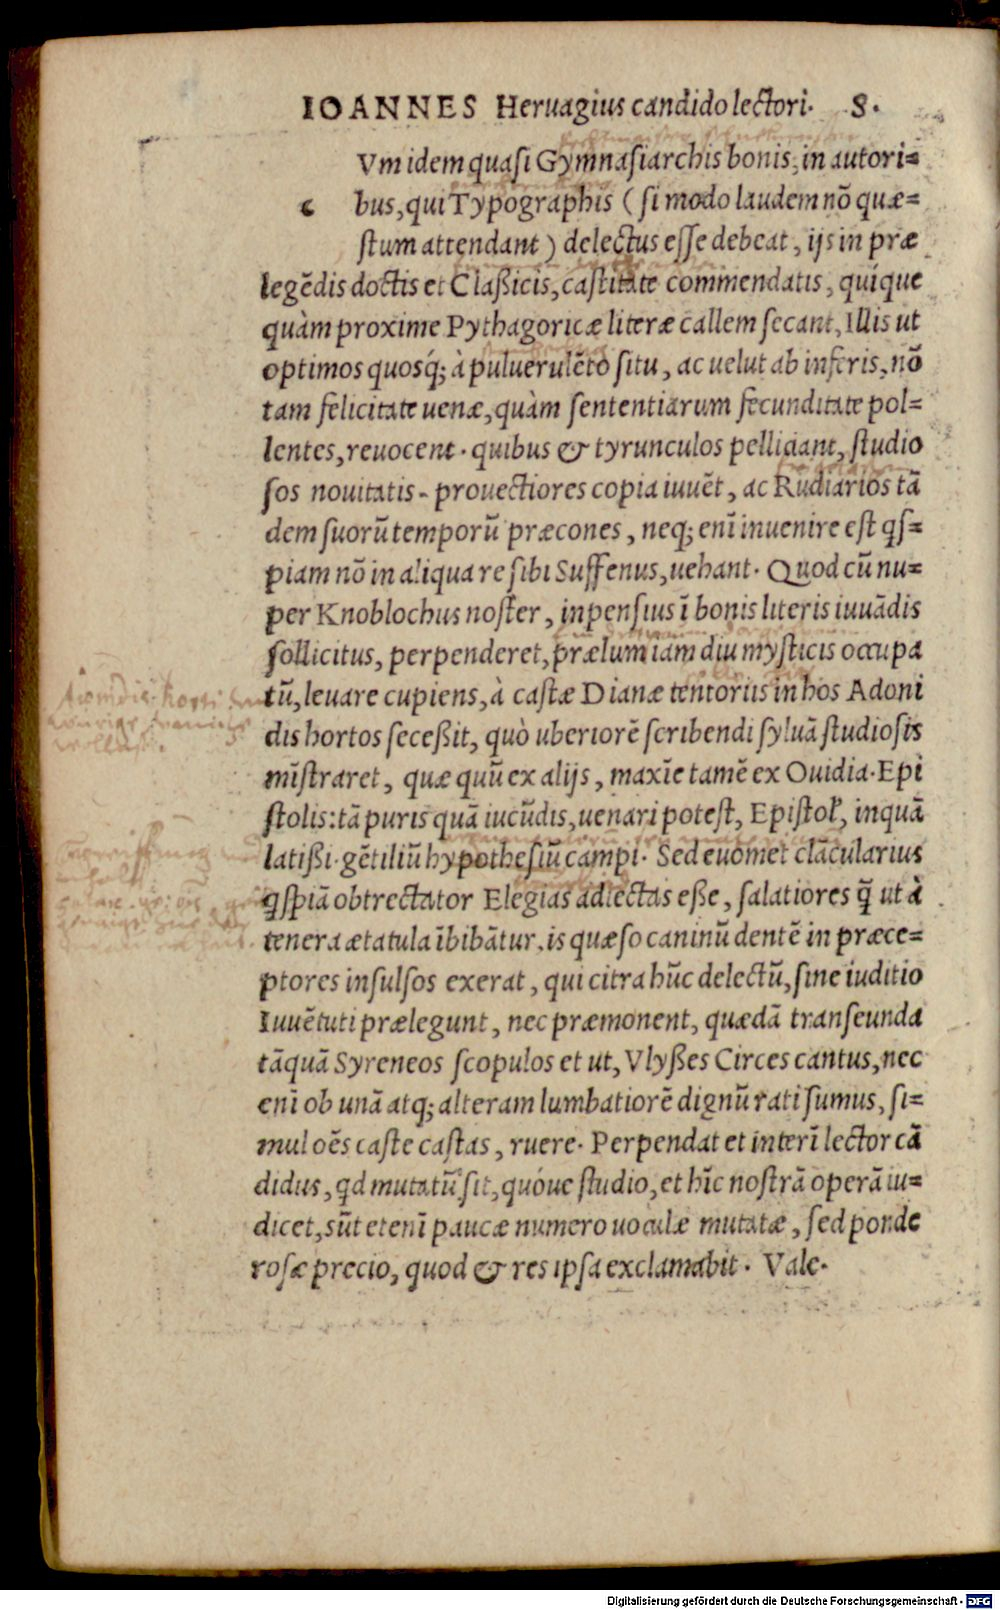 IOANNES Heruagius candido lectori. S.
Vm idem quasi Gymnasiarchis bonis, in autori=
c bus, qui Typographis ( si modo laudem nõ quæ=
stum attendant ) delectus esse debeat, ijs in præ
legẽdis doctis et Claßicis, castitate commendatis, quíque
quàm proxime Pythagoricæ literæ callem secant, Illis ut
optimos quosq́; à puluerulẽto situ, ac uelut ab inferis, nõ
tam felicitate uenæ, quàm sententiarum fecunditate pol=
lentes, reuocent. quibus & tyrunculos pelliciant, studio
sos nouitatis. prouectiores copia iuuẽt, ac Rudiarios tã
dem suorũ temporũ præcones, neq; enĩ inuenire est qs=
piam nõ in aliqua re sibi Suffenus, uehant. Quod cũ nu=
per Knoblochus noster, inpensius ĩ bonis literis iuuãdis
sollicitus, perpenderet, prælum iam diu mysticis occupa
tũ, leuare cupiens, à castæ Dianæ tentoriis in hos Adoni
dis hortos seceßit, quò uberiorẽ scribendi syluã studiosis
mĩstraret, quæ quũ ex alijs, maxĩe tamẽ ex Ouidia. Epi
stolis: tã puris quã iucũdis, uenari potest, Epistoł, inquã
latißi. gẽtiliũ hypothesiũ campi. Sed euomet clãcularius
qspiã obtrectator Elegias adiectas eße, salatiores q̃ ut à
tenera ætatula ĩbibãtur. is quæso caninũ dentẽ in præce=
ptores insulsos exerat, qui citra hũc delectũ, sine iuditio
Iuuẽtuti prælegunt, nec præmonent, quædã transeunda
tãquã Syreneos scopulos et ut, Vlyßes Circes cantus, nec
enĩ ob unã atq; alteram lumbatiorẽ dignũ rati sumus, si=
mul oẽs caste castas, ruere. Perpendat et interĩ lector cã
didus, qd mutatũ sit, quóue studio, et hĩc nostrã operã iu=
dicet, sũt etenĩ paucæ numero uoculæ mutatæ, sed ponde
rosæ precio, quod & res ipsa exclamabit. Vale.
Digitalisierung gefördert durch die Deutsche Forschungsgemeinschaft - DFG